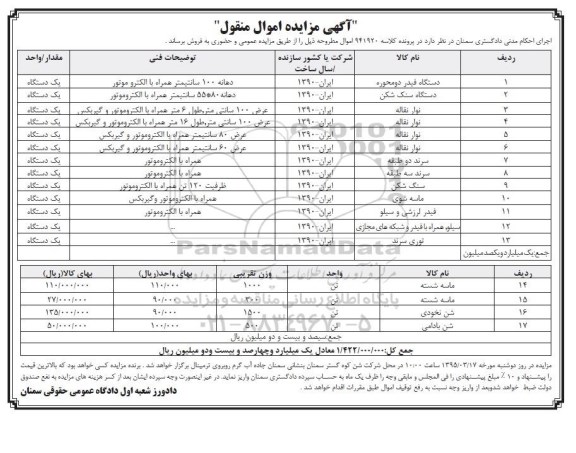 "آگهی مزایده اموال منقول"
اجرای احکام مدنی دادگستری سمنان در نظر دارد در پرونده کلاسه ۹۴۱۹۲۰ اموال مطروحه ذیل را از طریق مزایده عمومی و حضوری به فروش برساند .
ردیف نام کالا شرکت یا کشور سازنده /سال ساخت توضیحات فنی مقدار/واحد
۱ دستگاه فیدر دومحوره ایران-۱۳۹۰ دهانه ۱۰۰ سانتیمتر همراه با الکترو موتور یک دستگاه
۲ دستگاه سنگ شکن ایران-۱۳۹۰ دهانه ۸۰*۵۵ سانتیمتر همراه با الکتروموتور یک دستگاه
۳ نوار نقاله ایران-۱۳۹۰ عرض ۱۰۰ سانتی متر،طول ۶ متر همراه با الکتروموتور و گیربکس یک دستگاه
۴ نوار نقاله ایران-۱۳۹۰ عرض ۱۰۰ سانتی متر،طول ۱۶ متر همراه با الکتروموتور و گیربکس یک دستگاه
۵ نوار نقاله ایران-۱۳۹۰ عرض ۸۰ سانتیمتر همراه با الکتروموتور و گیربکس یک دستگاه
۶ نوار نقاله ایران-۱۳۹۰ عرض ۶۰ سانتیمتر همراه با الکتروموتور و گیربکس یک دستگاه
۷ سرند دو طبقه ایران-۱۳۹۰ همراه با الکتروموتور یک دستگاه
۸ سرند سه طبقه ایران-۱۳۹۰ همراه با الکتروموتور یک دستگاه
۹ سنگ شکن ایران-۱۳۹۰ ظرفیت ۱۲۰ تن همراه با الکتروموتور یک دستگاه
۱۰ ماسه شوی ایران-۱۳۹۰ همراه با الکتروموتور وگیربکس یک دستگاه
۱۱ فیدر لرزشی و سیلو ایران-۱۳۹۰ همراه با الکتروموتور یک دستگاه
۱۲ سیلو، همراه با فیدر و شبکه های مجازی ایران-۱۳۹۰ ... یک دستگاه
۱۳ توری سرند ایران-۱۳۹۰ ... یک دستگاه
جمع:یک میلیارد ویکصد میلیون
ردیف نام کالا واحد وزن تقریبی بهای واحد(ریال) بهای کالا(ریال)
۱۴ ماسه شسته تن ۱۰۰۰ ۱۱۰/۰۰۰ ۱۱۰/۰۰۰/۰۰۰
۱۵ ماسه شسته تن ۳۰۰ ۹۰/۰۰۰ ۲۷/۰۰۰/۰۰۰
۱۶ شن نخودی تن ۱۵۰۰ ۹۰/۰۰۰ ۱۳۵/۰۰۰/۰۰۰
۱۷ شن بادامی تن ۵۰۰ ۱۰۰/۰۰۰ ۵۰/۰۰۰/۰۰۰
جمع:سیصد و بیست و دو میلیون ریال
جمع کل:۱/۴۲۲/۰۰۰/۰۰۰ معادل یک میلیارد وچهارصد و بیست ودو میلیون ریال
مزایده در روز دوشنبه مورخه ۱۳۹۵/۰۳/۱۷ ساعت ۱۰:۰۰ در محل شرکت شن کوه گستر سمنان بنشانی سمنان جاده آب گرم روبروی ترمینال برگزار خواهد شد . برنده مزایده کسی خواهد بود که بالاترین قیمت
را پیشنهاد و ۱۰٪ مبلغ پیشنهادی را فی المجلس و مابقی وجه را ظرف یک ماه به حساب سپرده دادگستری سمنان واریز نماید. در غیر اینصورت وجه سپرده ایشان بعد از کسر هزینه های مزایده به نفع صندوق
دولت ضبط خواهد شدوبعد از واریز وجه نسبت به رفع توقیف اموال طبق مقررات اقدام خواهد شد .
دادورز شعبه اول دادگاه عمومی حقوقی سمنان
ParsNamadData
پایگاه اطلاع رسانی مناقصه و مزایده
۰۲۱-۸۸۳۴۹۶۷۰-۵